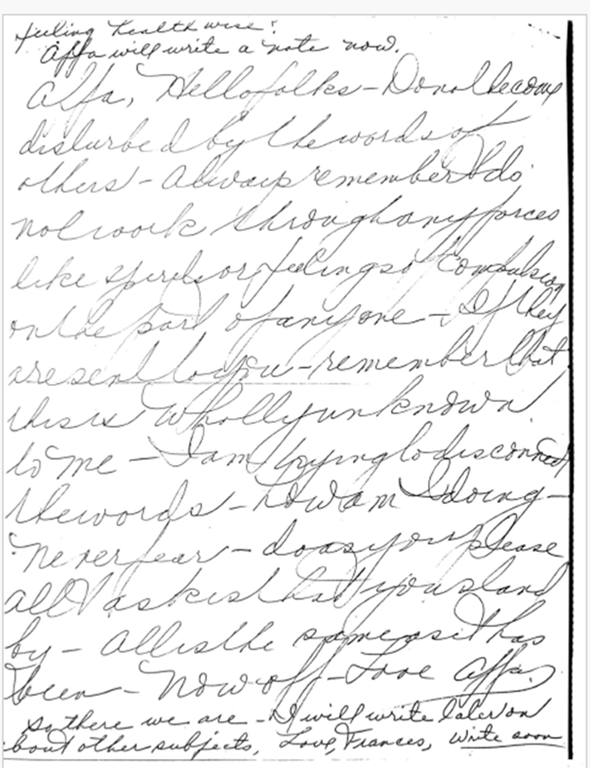 feeling health wise?
Affa will write a note now.
Affa, Hello folks - Do not become
disturbed by the words of
others - always remember I do
not work through any forces
like spirits or feelings of compulsion
on the part of anyone - If they
are sent to you - remember that
this is wholly unknown
to me - I am trying to disconnect
the words - how am I doing -
never fear - do as you please
all I ask is that you stand
by - All is the same as it has
been - Now off - Love Affa.
So there we are - I will write later on
about other subjects, Love, Frances, Write soon